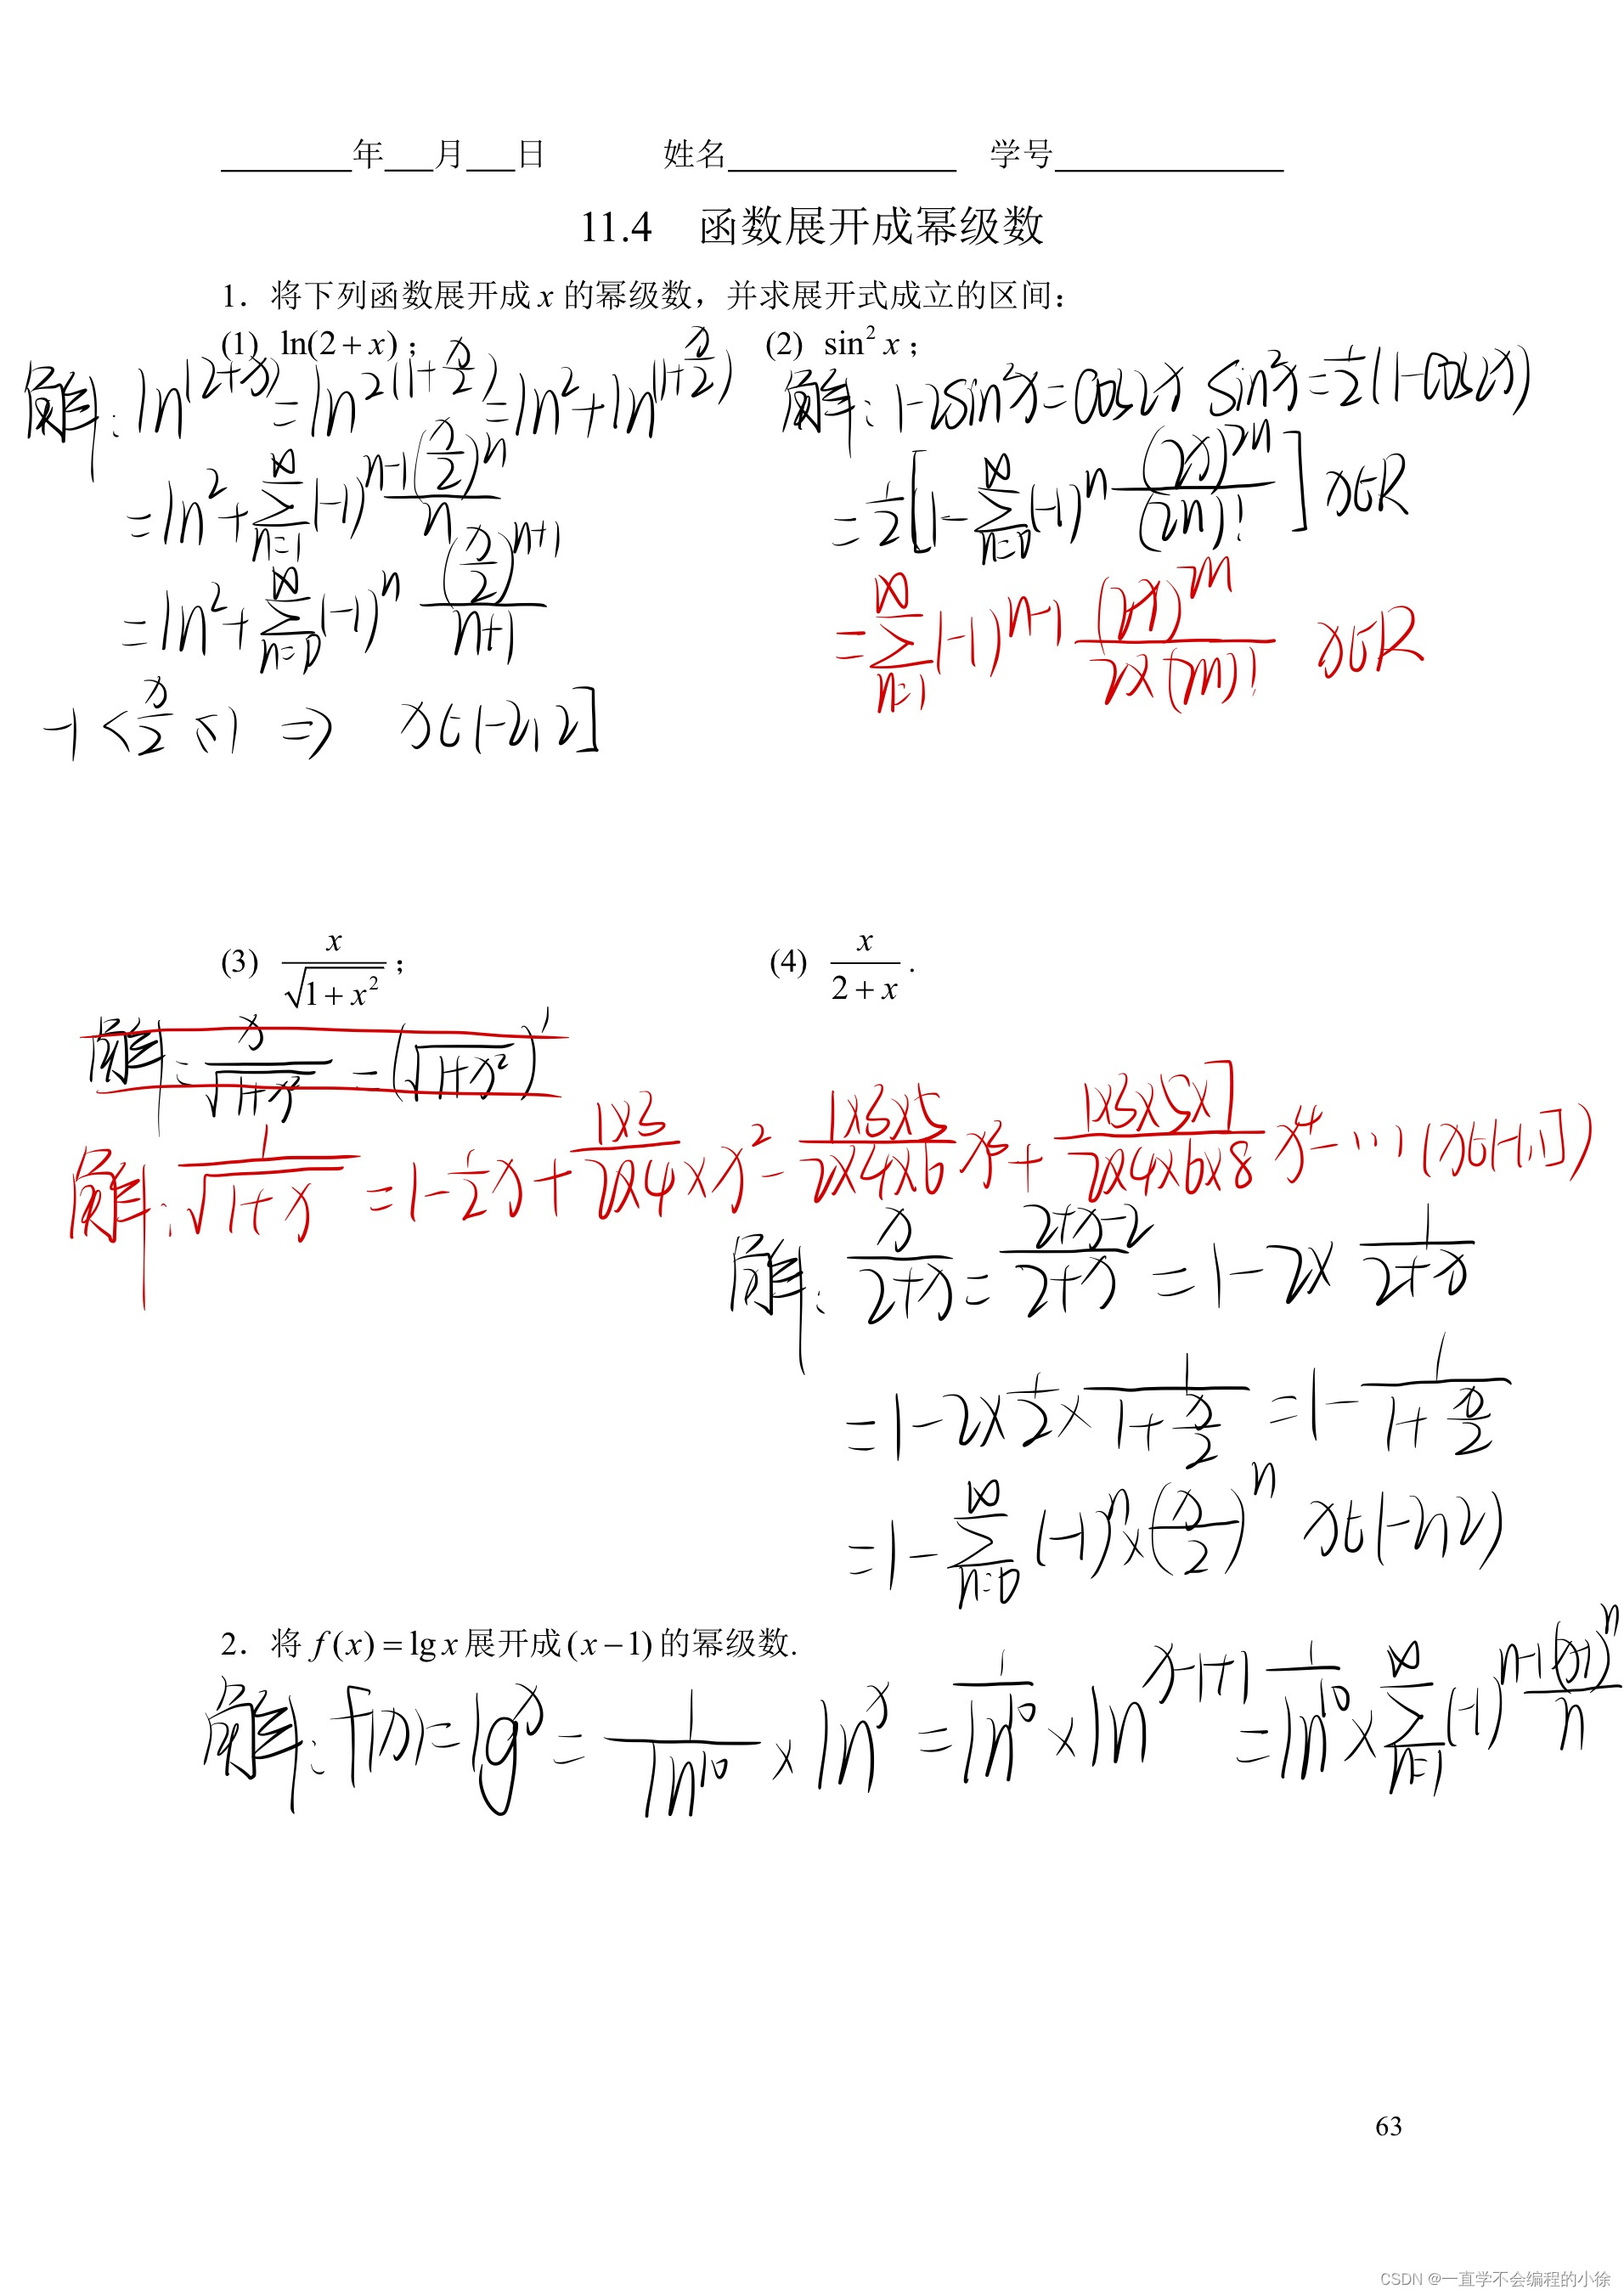 年 月 日 姓名 学号
11.4 函数展开成幂级数
1. 将下列函数展开成 x 的幂级数，并求展开式成立的区间：
(1) ln(2+x)；
(2) sin²x；
解：ln(2+x)=ln2(1+x/2)=ln2+ln(1+x/2)
=ln2+∑_{n=1}^{∞}(-1)^{n-1}(x/2)^n/n
=ln2+∑_{n=0}^{∞}(-1)^n (x/2)^{n+1}/(n+1)
-1<x/2≤1 ⇒ x∈(-2,2]
解：1-2sin²x=cos2x sin²x=1/2(1-cos2x)
=1/2[1-∑_{n=0}^{∞}(-1)^n (2x)^{2n}/(2n)!] x∈R
=∑_{n=1}^{∞}(-1)^{n-1} (2x)^{2n}/(2×(2n)!) x∈R
(3) x/√(1+x²)；
(4) x/(2+x).
解：x/√(1+x²)=(√(1+x²))'
解：1/√(1+x)=1-1/2x+(1×3)/(2×4)×x²-(1×3×5)/(2×4×6)x³+(1×3×5×7)/(2×4×6×8)x⁴-…(x∈(-1,1])
解：x/(2+x)=(2+x-2)/(2+x)=1-2×1/(2+x)
=1-2×1/2×1/(1+x/2)=1-1/(1+x/2)
=1-∑_{n=0}^{∞}(-1)^n×(x/2)^n x∈(-2,2)
2. 将 f(x)=lg x 展开成 (x-1) 的幂级数.
解：f(x)=lgx=1/ln10×lnx=1/ln10×ln x-1+1=1/ln10×∑_{n=1}^{∞}(-1)^{n-1}(x-1)^n/n
63
CSDN @一直学不会编程的小徐